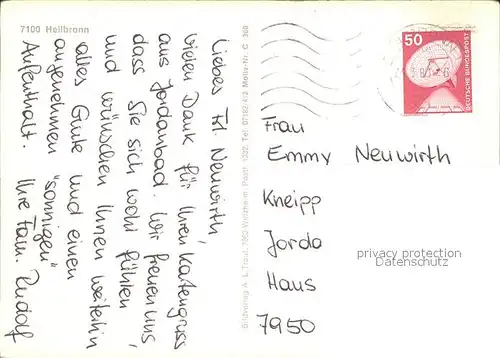 7100 Heilbronn
Liebes Frl. Neuwirth,
vielen Dank für Ihren Kartengruss
aus Jordanbad. Wir freuen uns,
dass Sie sich wohl fühlen
und wünschen Ihnen weiterhin
alles Gute und einen
angenehmen "sonnigen"
Aufenthalt. Ihre Fam. Rudolf
Bildverlag A. u. Traut, 7063 Welzheim, Postf. 1232, Tel. 07182/413 Motiv-Nr. C 360
50
DEUTSCHE BUNDESPOST
Frau
Emmy Neuwirth
Kneipp
Jorda
Haus
7950
privacy protection
Datenschutz